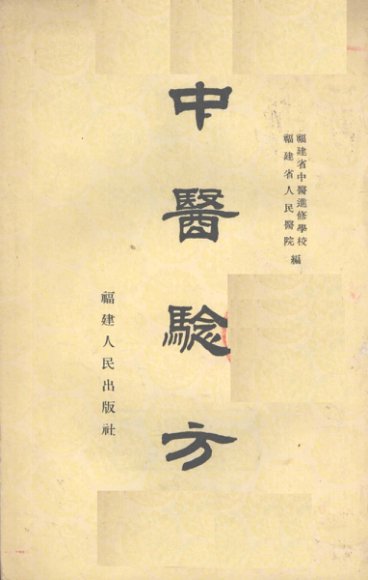 福建省中醫進修學校
福建省人民醫院
編
中醫驗方
福建人民出版社